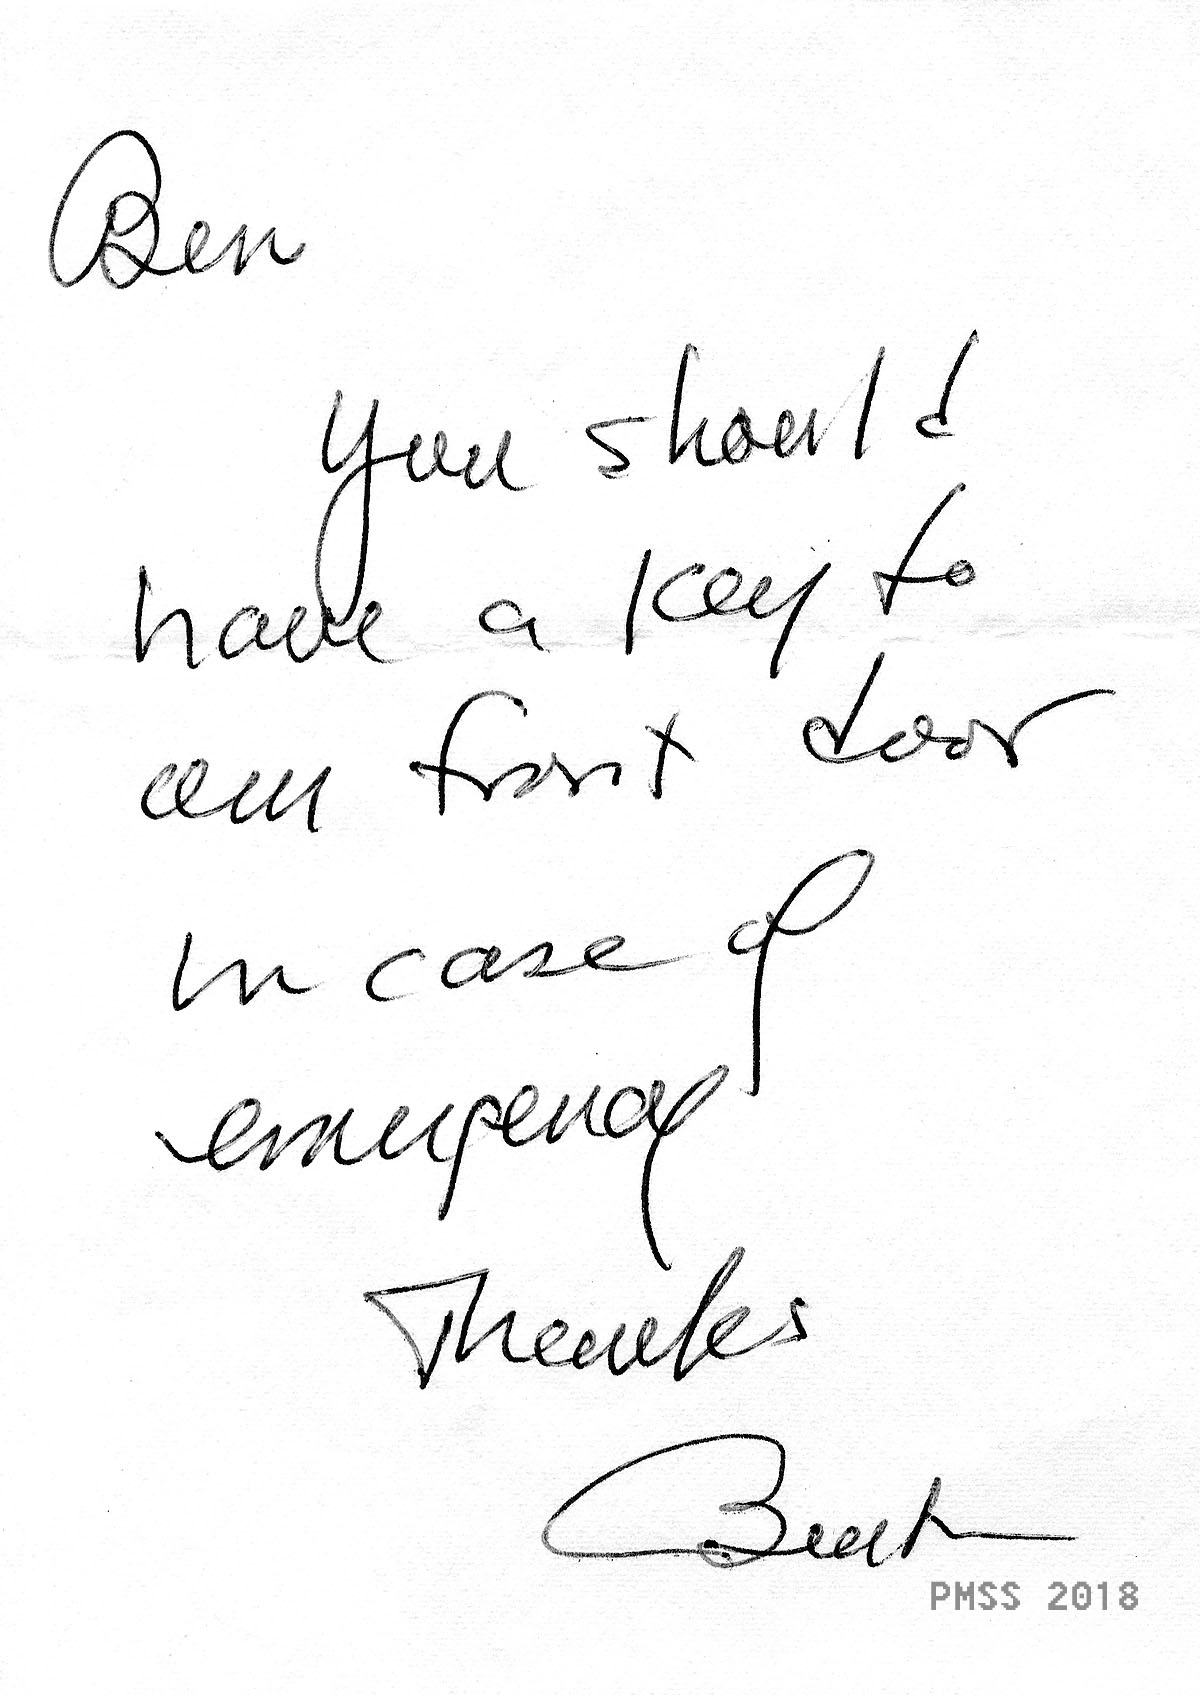 Ben
You should
have a key to
our front door
in case of
emergency
Thanks
PMSS 2018